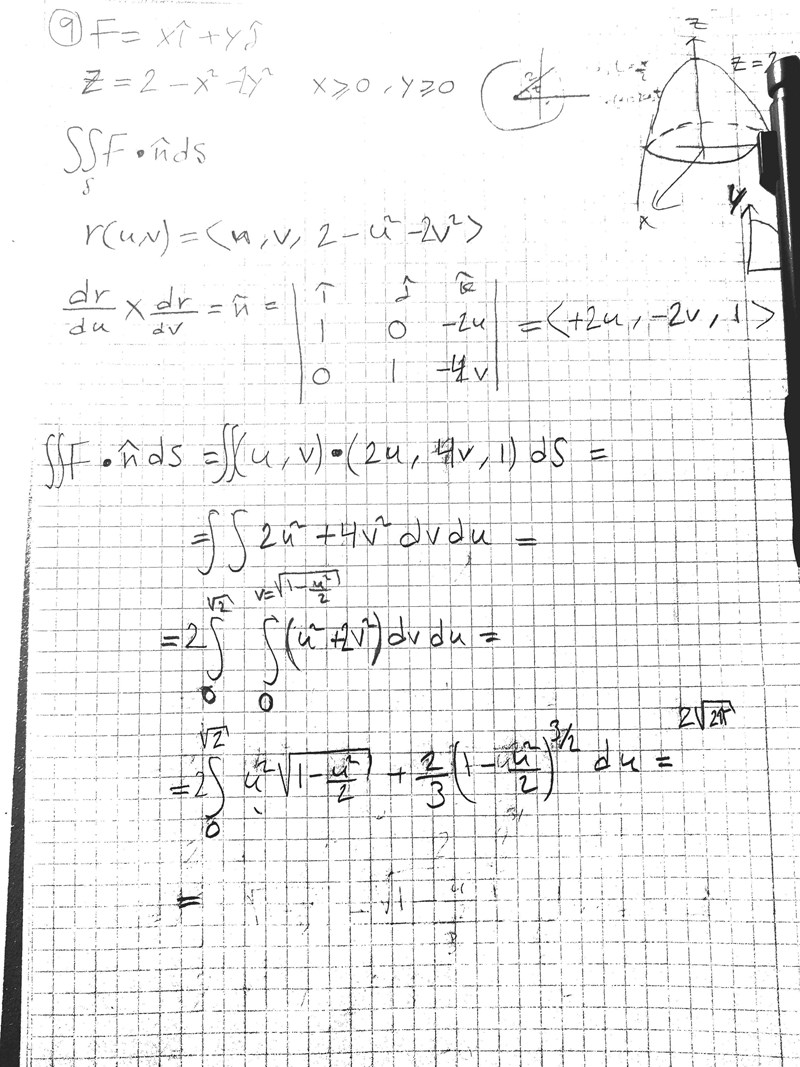 ⑨ F = xî + yĵ
z = 2 - x² - 2y²   x ≥ 0, y ≥ 0
z
z = 2
x
y
∬_S F • n̂ dS
r(u,v) = ⟨u, v, 2 - u² - 2v²⟩
dr/du × dr/dv = n̂ = | î ĵ k̂ | = ⟨+2u, -2v, 1⟩
| 1 0 -2u |
| 0 1 -4v |
∬ F • n̂ dS = ∬ (u, v) • (2u, 4v, 1) dS =
= ∫∫ 2u² + 4v² dv du =
= 2 ∫_0^√2 ∫_0^{v=√(1 - u²/2)} (u² + 2v²) dv du =
= 2 ∫_0^√2 u² √(1 - u²/2) + 2/3 (1 - u²/2)^{3/2} du =
=